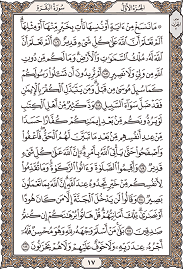 الجزء الأول سورة البقرة
مَا نَنسَخْ مِنْ ءَايَةٍ أَوْ نُنسِهَا نَأْتِ بِخَيْرٍ مِّنْهَآ أَوْ مِثْلِهَآ
أَلَمْ تَعْلَمْ أَنَّ ٱللَّهَ عَلَىٰ كُلِّ شَىْءٍ قَدِيرٌ ١٠٦ أَلَمْ تَعْلَمْ أَنَّ
ٱللَّهَ لَهُۥ مُلْكُ ٱلسَّمَٰوَٰتِ وَٱلْأَرْضِ وَمَا لَكُم مِّن دُونِ
ٱللَّهِ مِن وَلِىٍّ وَلَا نَصِيرٍ ١٠٧ أَمْ تُرِيدُونَ أَن تَسْـَٔلُوا۟ رَسُولَكُمْ
كَمَا سُئِلَ مُوسَىٰ مِن قَبْلُ وَمَن يَتَبَدَّلِ ٱلْكُفْرَ بِٱلْإِيمَٰنِ
فَقَدْ ضَلَّ سَوَآءَ ٱلسَّبِيلِ ١٠٨ وَدَّ كَثِيرٌ مِّنْ أَهْلِ ٱلْكِتَٰبِ
لَوْ يَرُدُّونَكُم مِّنۢ بَعْدِ إِيمَٰنِكُمْ كُفَّارًا حَسَدًا
مِّنْ عِندِ أَنفُسِهِم مِّنۢ بَعْدِ مَا تَبَيَّنَ لَهُمُ ٱلْحَقُّ فَٱعْفُوا۟
وَٱصْفَحُوا۟ حَتَّىٰ يَأْتِىَ ٱللَّهُ بِأَمْرِهِۦٓ إِنَّ ٱللَّهَ عَلَىٰ كُلِّ شَىْءٍ
قَدِيرٌ ١٠٩ وَأَقِيمُوا۟ ٱلصَّلَوٰةَ وَءَاتُوا۟ ٱلزَّكَوٰةَ وَمَا تُقَدِّمُوا۟
لِأَنفُسِكُم مِّنْ خَيْرٍ تَجِدُوهُ عِندَ ٱللَّهِ إِنَّ ٱللَّهَ بِمَا تَعْمَلُونَ
بَصِيرٌ ١١٠ وَقَالُوا۟ لَن يَدْخُلَ ٱلْجَنَّةَ إِلَّا مَن كَانَ هُودًا
أَوْ نَصَٰرَىٰ تِلْكَ أَمَانِيُّهُمْ قُلْ هَاتُوا۟ بُرْهَٰنَكُمْ إِن كُنتُمْ
صَٰدِقِينَ ١١١ بَلَىٰ مَنْ أَسْلَمَ وَجْهَهُۥ لِلَّهِ وَهُوَ مُحْسِنٌ فَلَهُۥٓ
أَجْرُهُۥ عِندَ رَبِّهِۦ وَلَا خَوْفٌ عَلَيْهِمْ وَلَا هُمْ يَحْزَنُونَ ١١٢
١٧